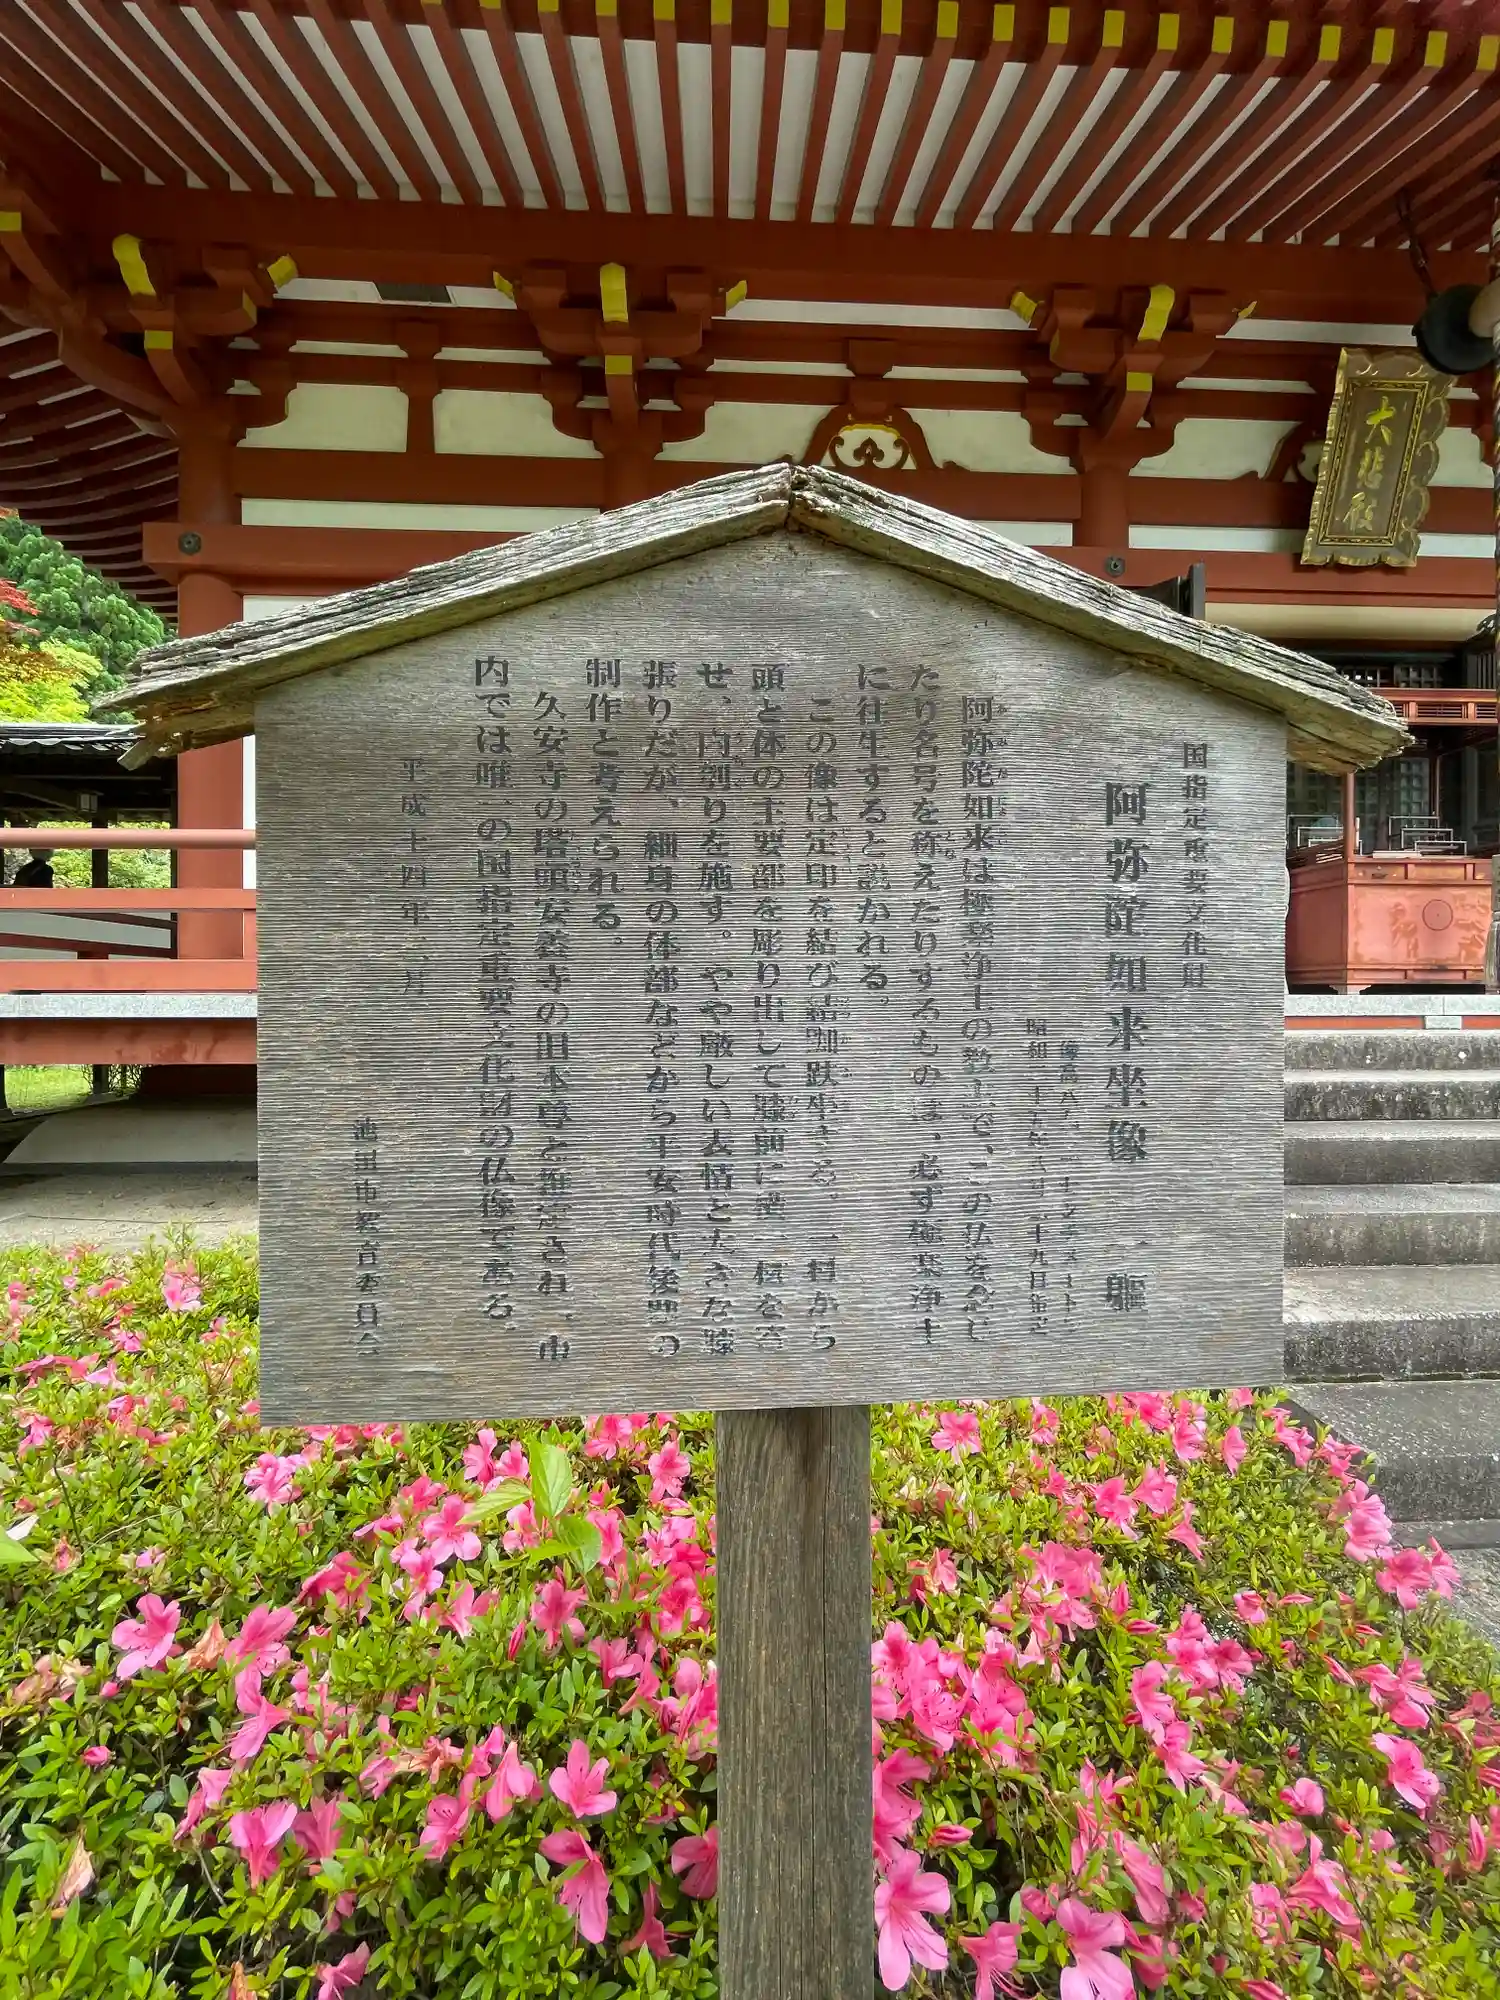 国指定重要文化財
阿弥陀如来坐像 一軀
像高八
昭和二十五年 月二十九日指定
阿弥陀如来は極楽浄土の教主で、この仏を念じ
たり名号を称えたりするものは、必ず極楽浄土
に往生すると説かれる。
この像は定印を結び結跏趺坐する。一材から
頭と体の主要部を彫り出して膝前に横一材を寄
せ、内刳りを施す。やや厳しい表情と大きな膝
張りだが、細身の体部などから平安時代後期の
制作と考えられる。
久安寺の塔頭安養寺の旧本尊と推定され、市
内では唯一の国指定重要文化財の仏像である。
平成十四年 月
池田市教育委員会
大悲殿